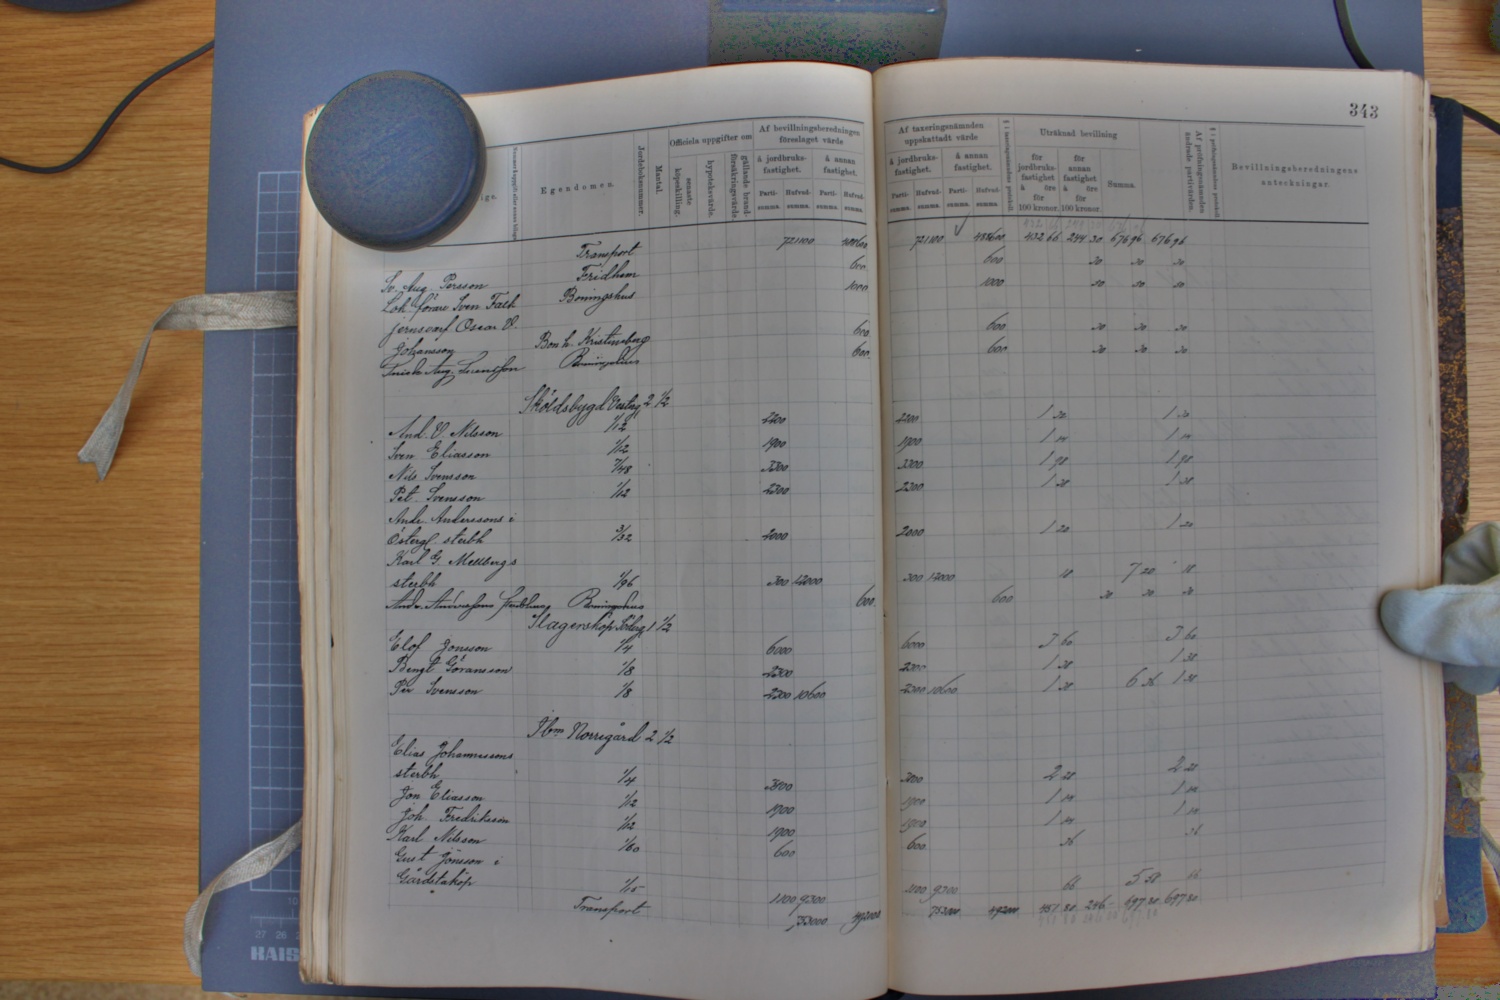 343
Egendomen.
Jordeboksnummer.
Mantal.
Officiela uppgifter om
senaste köpeskilling.
hypoteksvärde.
gällande brandförsäkringsvärde
Af bevillningsberedningen föreslaget värde
å jordbruksfastighet.
å annan fastighet.
Partisumma. Hufvudsumma. Partisumma. Hufvudsumma.
Af taxeringsnämnden uppskattadt värde
å jordbruksfastighet.
å annan fastighet.
Partisumma. Hufvudsumma. Partisumma. Hufvudsumma.
Uträknad bevillning
för jordbruksfastighet à öre för 100 kronor.
för annan fastighet à öre för 100 kronor.
Summa.
Af pröfningsnämnden ändrade partivärden.
Bevillningsberedningens anteckningar.
Transport 721100 721100 488600 432 66 244 30 676 96 676 96
Fridhem 600 600 30 30 30
Sv. Aug. Persson Boningshus 1000 1000
Lok. förare Sven Falk
Jernsvarf Oscar V.
Johansson Bonh. Kristineberg 600 600 30 30 30
Boningshus 600 600 30 30 30
Sköldsbygd Vesterg 2 1/2
And. V. Nilsson 1/12 2200 2200 1 1
Sven Eliasson 1/12 1900 1900 1 14 1 14
Nils Svensson 7/48 3300 3300 1 98 1 98
Pet. Svensson 1/12 2300 2300 1 38 1 38
Ande Anderssons i
Östergl sterbh 3/32 2000 2000 1 20 1 20
Karl G. Mellbergs
sterbh 1/96 300 12000 300 12000 18 7 20 18
Boningshus 600 600 30 30 30
Slagerskop Söderg 1 1/2
Elof Jonsson 1/4 6000 6000 3 60 3 60
Bengt Göransson 1/8 2300 2300 1 38 1 38
Per Svensson 1/8 2300 10600 2300 10600 1 38 6 36 1 38
Ibm Norregård 2 1/2
Elias Johannessons
sterbh 1/4 3800 3800 2 28 2 28
Jon Eliasson 1/12 1900 1900 1 14 1 14
Joh. Fredriksson 1/12 1900 1900 1 14 1 14
Karl Nilsson 1/60 600 600 36 36
Gust Jönsson i
Gärdstaköp 1/15 1100 9300 1100 9300 66 5 58 66
Transport 753000 492000 753000 492000 451 80 246 - 697 80 697 80